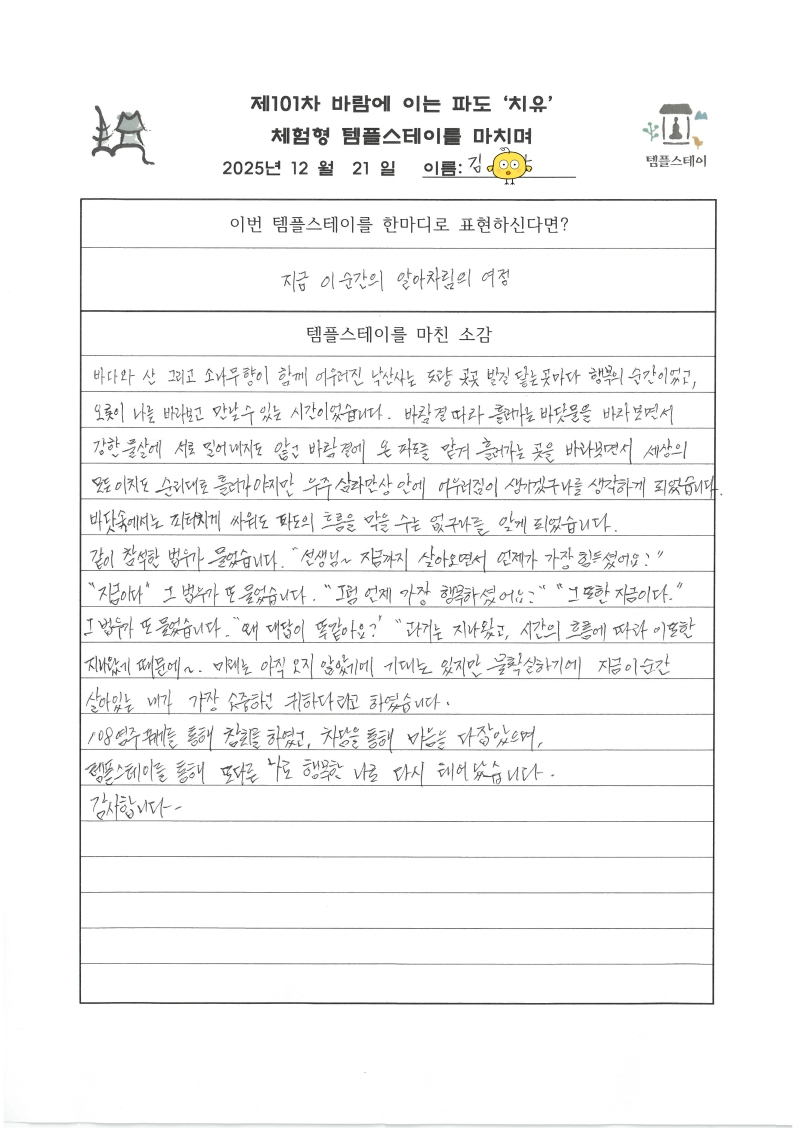 제101차 바람에 이는 파도 '치유'
체험형 템플스테이를 마치며
템플스테이
2025년 12 월 21 일 이름: 김
이번 템플스테이를 한마디로 표현하신다면?
지금 이 순간의 알아차림의 여정
템플스테이를 마친 소감
바다와 산 그리고 소나무향이 함께 어우러진 낙산사는 도량 곳곳 발길 닿는 곳마다 행복의 순간이었고,
오롯이 나를 바라보고 만날 수 있는 시간이었습니다. 바람결 따라 흘러가는 바닷물을 바라보면서
강한 물살에 서로 밀어내지도 않고 바람결에 온 파도를 맡겨 흘러가는 곳을 바라보면서 세상의
모든 이치도 순리대로 흘러가야지만 우주 삼라만상 안에 어우러짐이 생기겠구나를 생각하게 되었습니다.
바닷속에서는 피터지게 싸워도 파도의 흐름을 막을 수는 없구나를 알게 되었습니다.
같이 참석한 법우가 물었습니다. "선생님~ 지금까지 살아오면서 언제가 가장 힘드셨어요?"
"지금이다" 그 법우가 또 물었습니다. "그럼 언제 가장 행복하셨어요?" "그 또한 지금이다."
그 법우가 또 물었습니다. "왜 대답이 똑같아요?" "과거는 지나왔고, 시간의 흐름에 따라 이 또한
지나왔기 때문에~. 미래는 아직 오지 않았기에 기대는 있지만 불확실하기에 지금 이 순간
살아있는 내가 가장 소중하고 귀하다라고 하였습니다.
108염주 꿰기를 통해 참회를 하였고, 차담을 통해 마음을 다잡았으며,
템플스테이를 통해 또다른 나로 행복한 나로 다시 태어났습니다.
감사합니다~